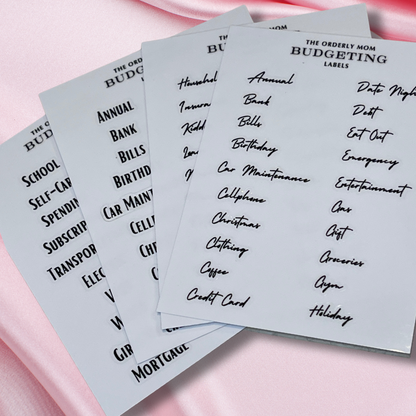 THE ORDERLY MOM
BUDGETING
LABELS
Annual
Bank
Bills
Birthday
Car Maintenance
Cellphone
Christmas
Clothing
Coffee
Credit Card
Date Nigh
Debt
Eat Out
Emergency
Entertainment
Gas
Gift
Groceries
Gym
Holiday
THE O
BU
Househol
Insuran
Kidd
THE ORDERLY
BUDG
ANNUAL
BANK
BILLS
BIRTHD
CAR MAINT
CELL
CH
MORTGAGE
THE OR
BUD
SCHOOL
SELF-CA
SPENDING
SUBSCRI
TRANSPOR
ELEC